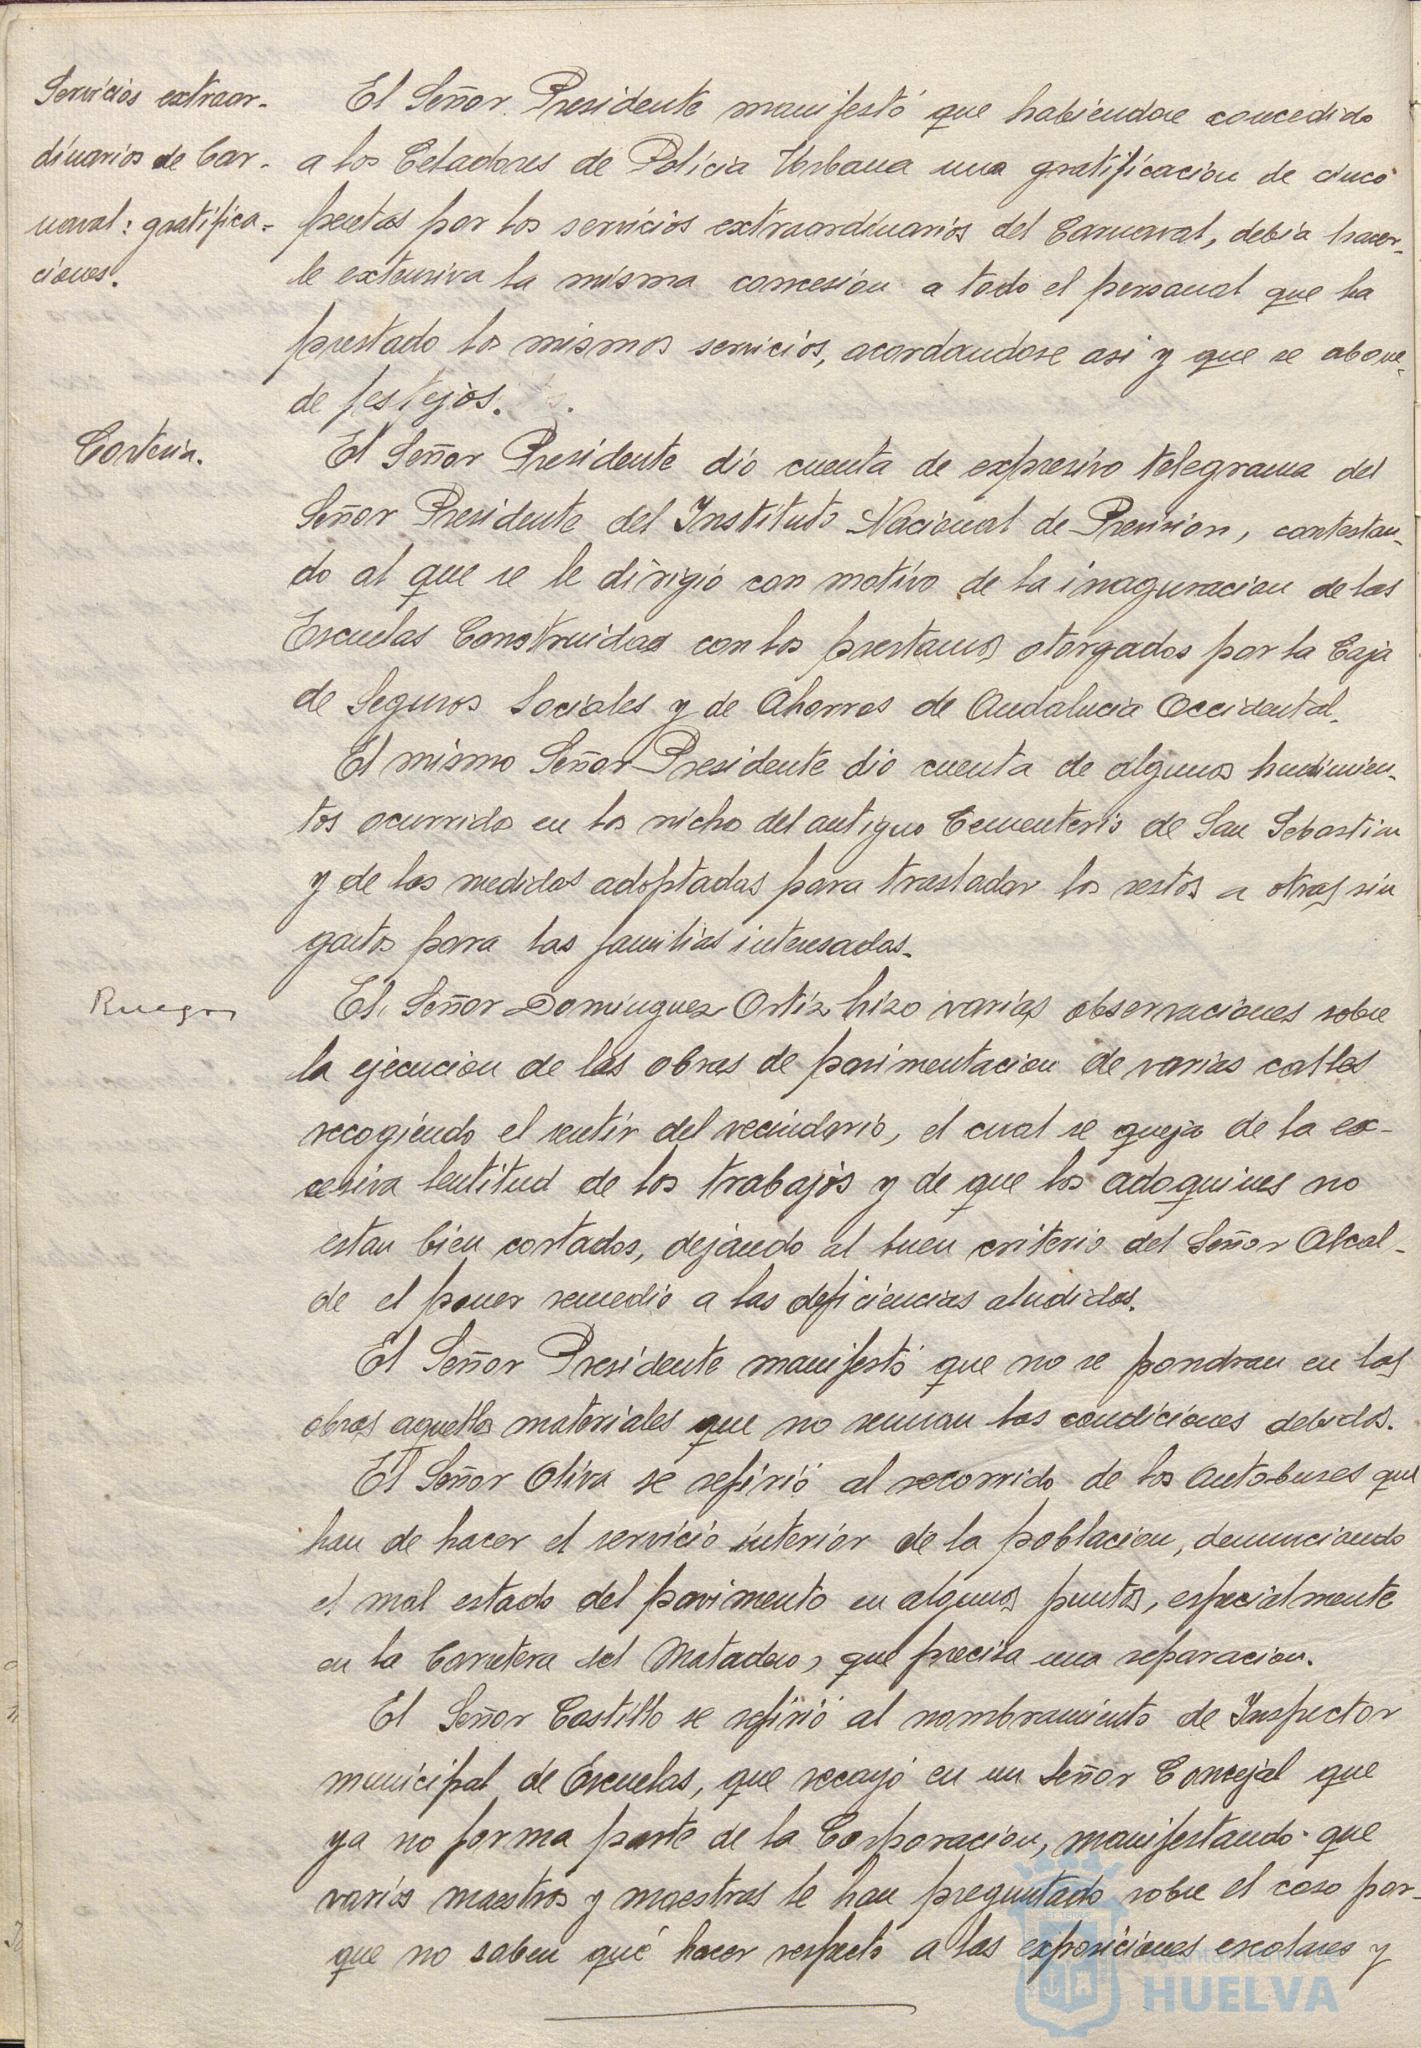 Servicios extraor-
dinarios de Car-
naval: gratifica-
ciones.
El Señor Presidente manifestó que habiendose concedido
a los Celadores de Policia Urbana una gratificacion de cinco
pesetas por los servicios extraordinarios del Carnaval, debia hacer-
le extensiva la misma concesion a todo el personal que ha
prestado los mismos servicios, acordandose asi y que se abone
de festejos.
Cortesia.
El Señor Presidente dió cuenta de expresivo telegrama del
Señor Presidente del Instituto Nacional de Prevision, contestan-
do al que se le dirigió con motivo de la inaguracion de las
Escuelas Construidas con los prestamos otorgados por la Caja
de Seguros Sociales y de Ahorros de Andalucia Occidental.
El mismo Señor Presidente dió cuenta de algunos hudimien-
tos ocurrido en los nicho del antiguo Cementerio de San Sebastian
y de las medidas adoptadas para trasladar los restos a otras sin
gastos para las familias interesadas.
Ruegos
El Señor Dominguez Ortiz hizo varias observaciones sobre
la ejecucion de las obras de pavimentacion de varias calles
recogiendo el sentir del vecindario, el cual se queja de la ex-
cesiva lentitud de los trabajos y de que los adoquines no
estan bien cortados, dejando al buen criterio del Señor Alcal-
de el poner remedio a las deficiencias aludidas.
El Señor Presidente manifestó que no se pondran en las
obras aquellos materiales que no reunan las condiciones debidas.
El Señor Oliva se refirió al recorrido de los Autobuses que
han de hacer el servicio interior de la poblacion, denunciando
el mal estado del pavimento en algunos puntos, especialmente
en la Carretera del Matadero, que precisa una reparacion.
El Señor Castillo se refirió al nombramiento de Inspector
municipal de Escuelas, que recayó en un Señor Concejal que
ya no forma parte de la Corporacion, manifestando que
varios maestros y maestras le han preguntado sobre el caso por-
que no saben qué hacer respecto a las exposiciones escolares y
Ayuntamiento de
HUELVA